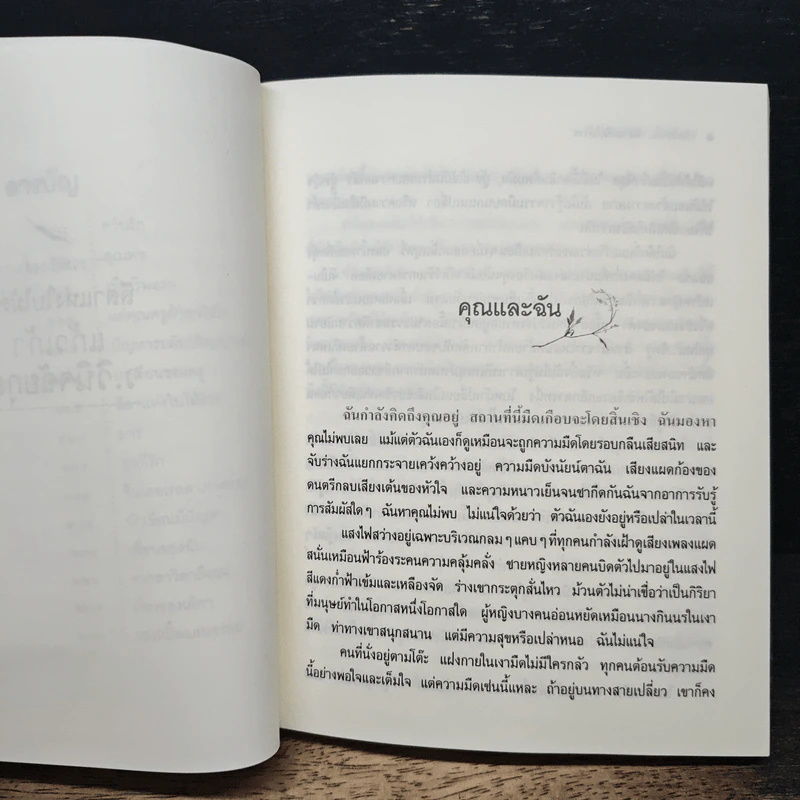 คุณและฉัน
ฉันกำลังคิดถึงคุณอยู่ สถานที่นี้มืดเกือบจะโดยสิ้นเชิง ฉันมองหา
คุณไม่พบเลย แม้แต่ตัวฉันเองก็ดูเหมือนจะถูกความมืดโดยรอบกลืนเสียสนิท และ
จับร่างฉันแยกกระจายเคว้งคว้างอยู่ ความมืดบังนัยน์ตาฉัน เสียงแผดก้องของ
ดนตรีกลบเสียงเต้นของหัวใจ และความหนาวเย็นจนชากีดกันฉันจากอาการรับรู้
การสัมผัสใดๆ ฉันหาคุณไม่พบ ไม่แน่ใจด้วยว่า ตัวฉันเองยังอยู่หรือเปล่าในเวลานี้
แสงไฟสว่างอยู่เฉพาะบริเวณกลมๆแคบๆที่ทุกคนกำลังเฝ้าดูเสียงเพลงแผด
สนั่นเหมือนฟ้าร้องระคนความคลุ้มคลั่ง ชายหญิงหลายคนบิดตัวไปมาอยู่ในแสงไฟ
สีแดงก่ำฟ้าเข้มและเหลืองจัด ร่างเขากระตุกสั่นไหว ม้วนตัวไม่น่าเชื่อว่าเป็นกิริยา
ที่มนุษย์ทำในโอกาสหนึ่งโอกาสใด ผู้หญิงบางคนอ่อนหยัดเหมือนนางกินนรในเงา
มืด ท่าทางเขาสนุกสนาน แต่มีความสุขหรือเปล่าหนอ ฉันไม่แน่ใจ
คนที่นั่งอยู่ตามโต๊ะ แฝงกายในเงามืดไม่มีใครกลัว ทุกคนต้อนรับความมืด
นี้อย่างพอใจและเต็มใจ แต่ความมืดเช่นนี้แหละ ถ้าอยู่บนทางสายเปลี่ยว เขาก็คง